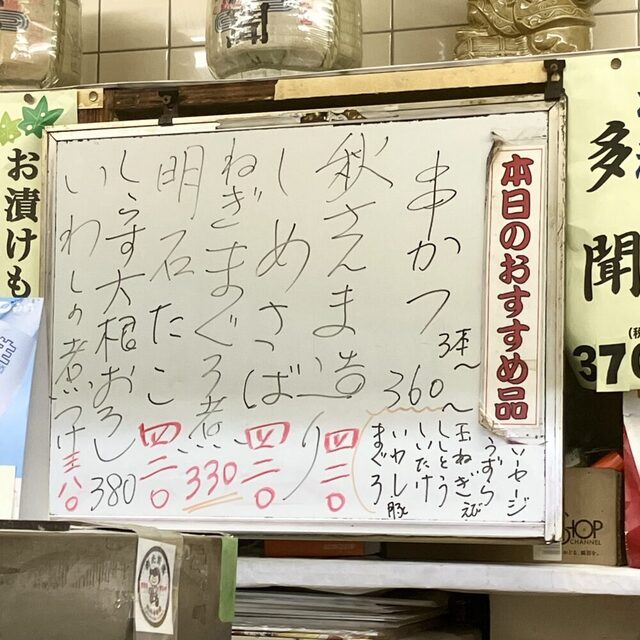 本日のおすすめ品
串かつ 3本〜 360〜
ソーセージ
うずら
玉ねぎ えび
ししとう
しいたけ
いわし 豚
まぐろ
秋さんま造り 四二〇
しめさば 四二〇
ねぎまぐろ煮 330
明石たこ 四二〇
しらす大根おろし 380
いわしの煮つけ 三八〇
お漬けも
多聞
(税
370
SHOP
CHANNEL